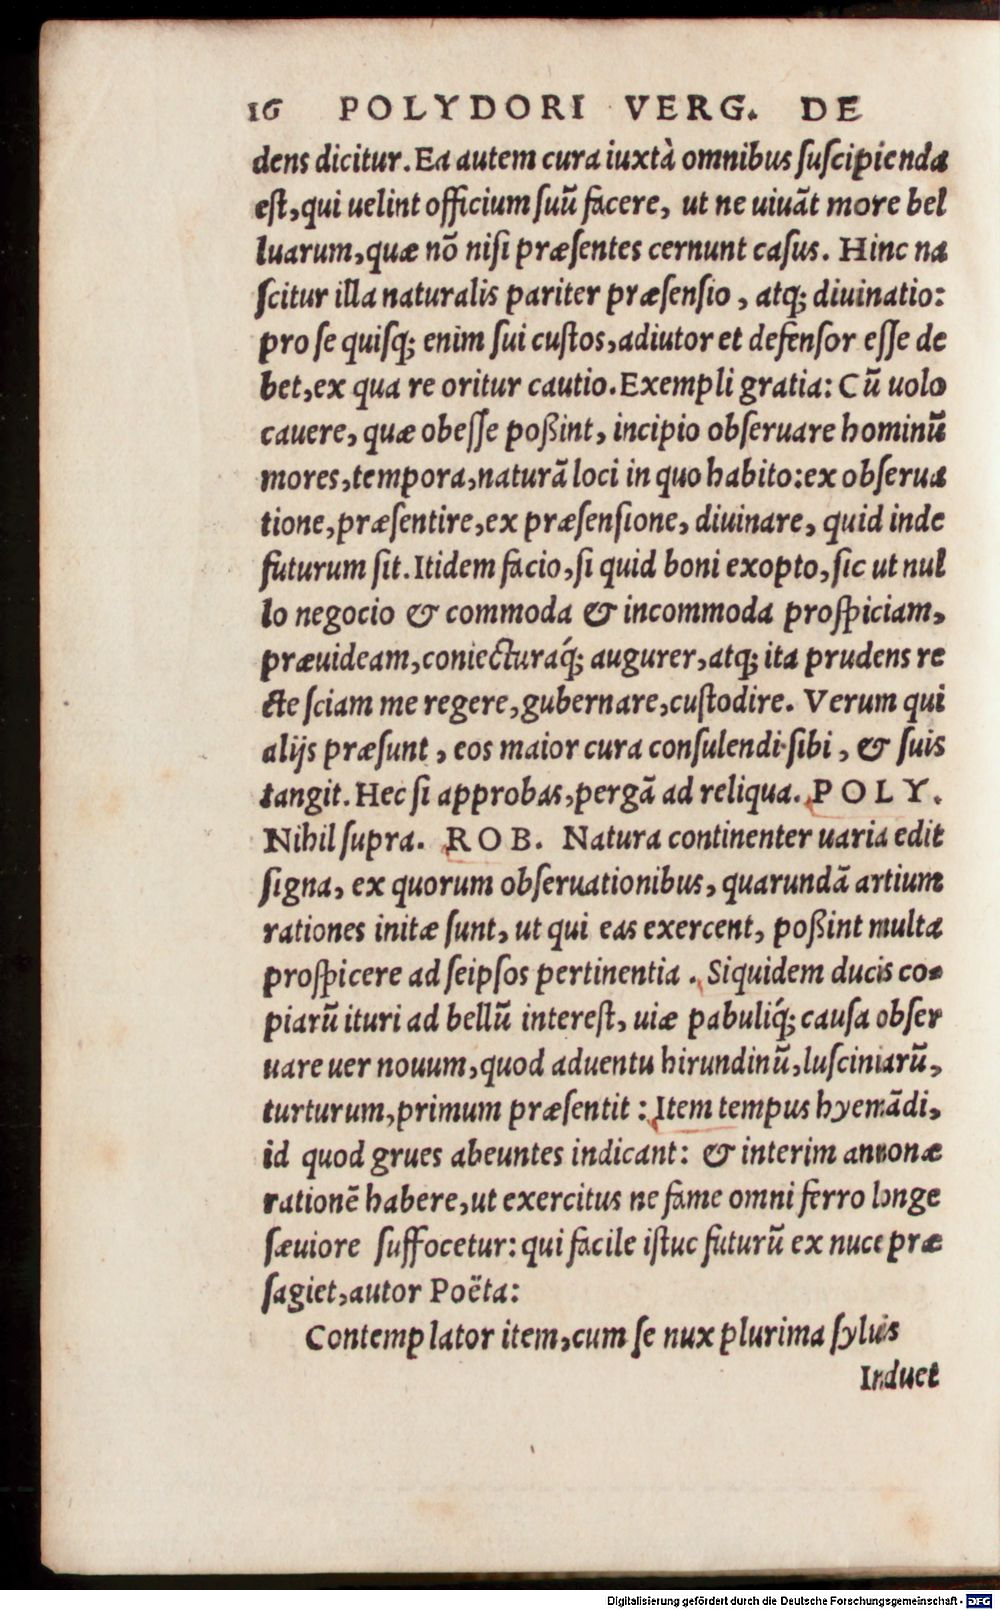 16 POLYDORI VERG. DE
dens dicitur. Ea autem cura iuxtà omnibus ſuſcipienda
eſt, qui uelint officium ſuũ facere, ut ne uiuãt more bel
luarum, quæ nõ niſi præſentes cernunt caſus. Hinc na
ſcitur illa naturalis pariter præſenſio, atq; diuinatio:
pro ſe quiſq; enim ſui cuſtos, adiutor et defenſor eſſe de
bet, ex qua re oritur cautio. Exempli gratia: Cũ uolo
cauere, quæ obeſſe poßint, incipio obſeruare hominũ
mores, tempora, naturã loci in quo habito: ex obſerua
tione, præſentire, ex præſenſione, diuinare, quid inde
futurum ſit. Itidem facio, ſi quid boni exopto, ſic ut nul
lo negocio & commoda & incommoda proſpiciam,
præuideam, coniecturaq́; augurer, atq; ita prudens re
cte ſciam me regere, gubernare, cuſtodire. Verum qui
alijs præſunt, eos maior cura conſulendi ſibi, & ſuis
tangit. Hec ſi approbas, pergã ad reliqua. POLY.
Nihil ſupra. ROB. Natura continenter uaria edit
ſigna, ex quorum obſeruationibus, quarundã artium
rationes initæ ſunt, ut qui eas exercent, poßint multa
proſpicere ad ſeipſos pertinentia. Siquidem ducis co-
piarũ ituri ad bellũ intereſt, uiæ pabuliq́; cauſa obſer
uare uer nouum, quod aduentu hirundinũ, luſciniarũ,
turturum, primum præſentit: Item tempus hyemãdi,
id quod grues abeuntes indicant: & interim annonæ
rationẽ habere, ut exercitus ne fame omni ferro longe
ſæuiore ſuffocetur: qui facile iſtuc futurũ ex nuce præ
ſagiet, autor Poëta:
Contemplator item, cum ſe nux plurima ſyluis
Induet
Digitalisierung gefördert durch die Deutsche Forschungsgemeinschaft - DFG